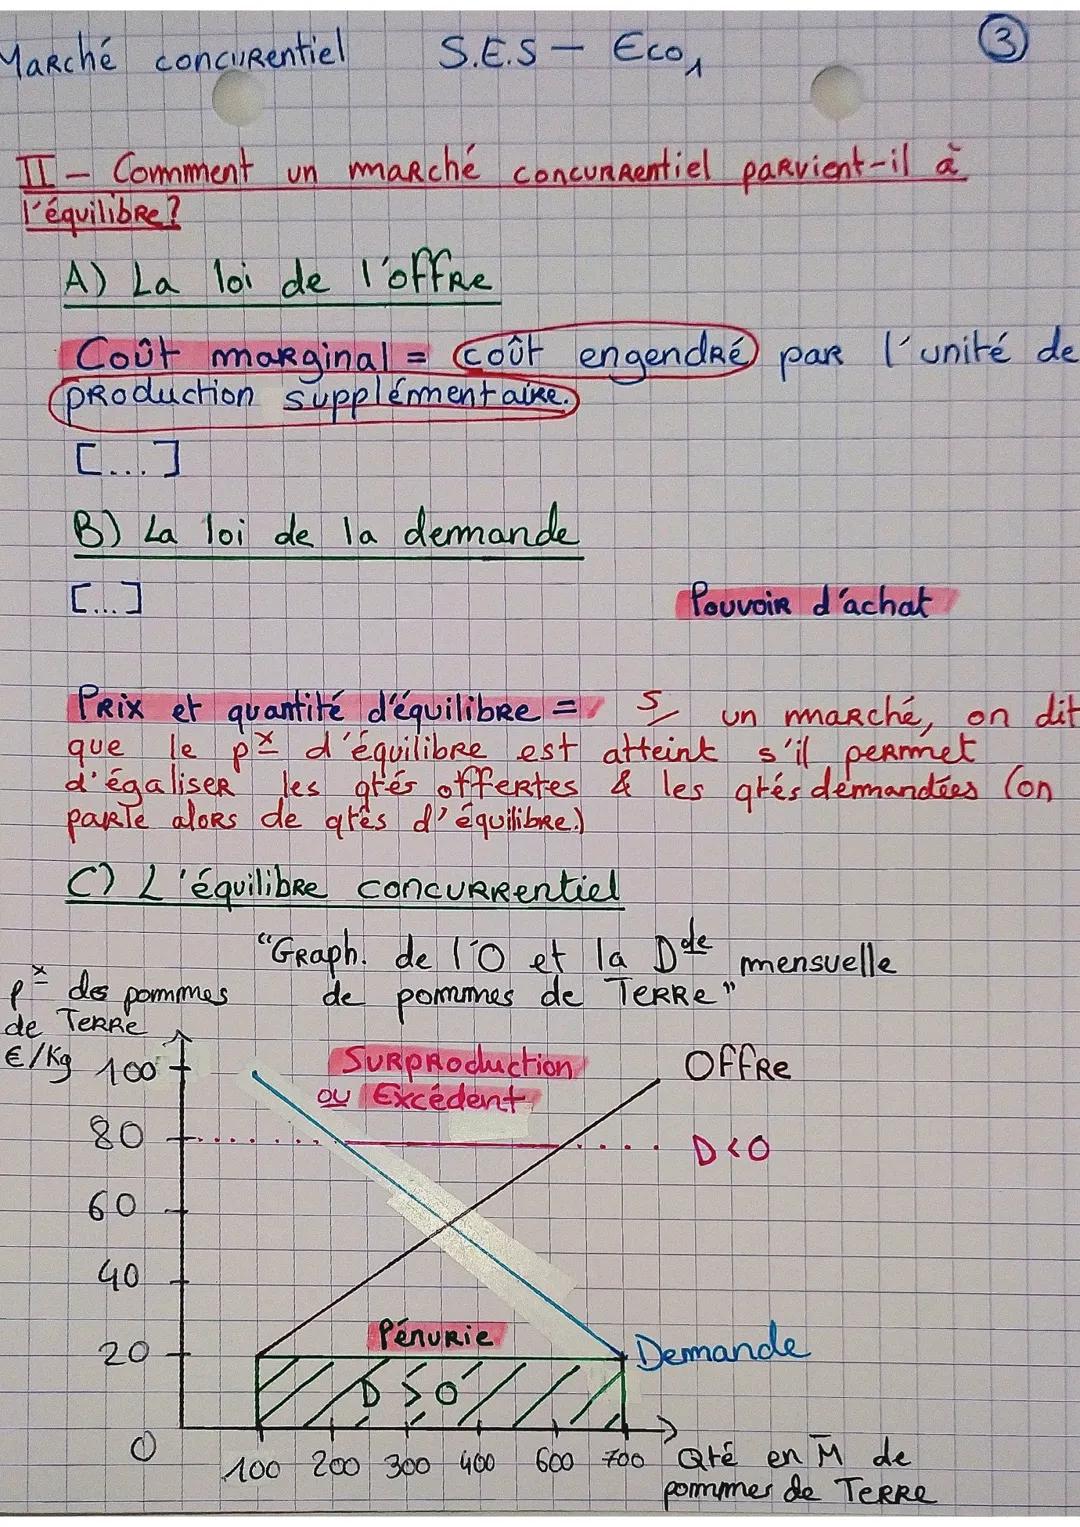 Marché concurentiel S.E.S - Eco1 3
II - Comment un marché concurrentiel parvient-il à
l'équilibre?
A) La loi de l'offre
Coût marginal = coût engendré par l'unité de
production supplémentaire.
[...]
B) La loi de la demande
[...] Pouvoir d'achat
Prix et quantité d'équilibre = S/ un marché, on dit
que le px d'équilibre est atteint s'il permet
d'égaliser les qtés offertes & les qtés demandées (on
parle alors de qtés d'équilibre.)
C) L'équilibre concurrentiel
"Graph. de l'O et la Dde mensuelle
de pommes de Terre"
px des pommes
de Terre
€/Kg
100
Surproduction
ou Excédent
Offre
80
D<O
60
40
Pénurie
20
Demande
D > O
0
100 200 300 400 600 700
Qté en M de
pommes de Terre